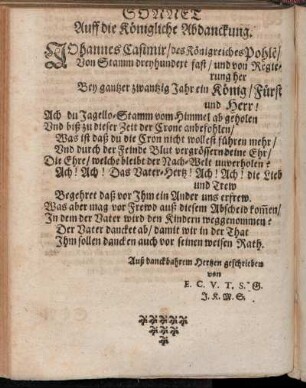 SONNET
Auff die Königliche Abdanckung.
Johannes Casimir/ des Königreiches Pohle/
Von Stamm dreyhundert fast/ und von Regie-
rung her
Bey gantzer zwantzig Jahr ein König/ Fürst
und Herr!
Ach du Jagello-Stamm vom Himmel ab geholen
Und biß zu dieser Zeit der Crone anbefohlen/
Was ist daß du die Cron nicht wollest führen mehr/
Und durch der Feinde Blut vergrössern deine Ehr/
Die Ehre/ welche bleibt der Nach-Welt unverholen?
Ach! Ach! Das Vater-Hertz! Ach! Ach! die Lieb
und Trew
Begehret daß vor Ihm ein Ander uns erfrew.
Was aber mag vor Frewd auß diesem Abscheid kom̃en/
In dem der Vater wird den Kindern weggenommen?
Der Vater dancket ab/ damit wir in der That
Ihm sollen dancken auch vor seinen weisen Rath.
Auß danckbahrem Hertzen geschrieben
von
E. C. V. T. S. G.
J. K. M. S.